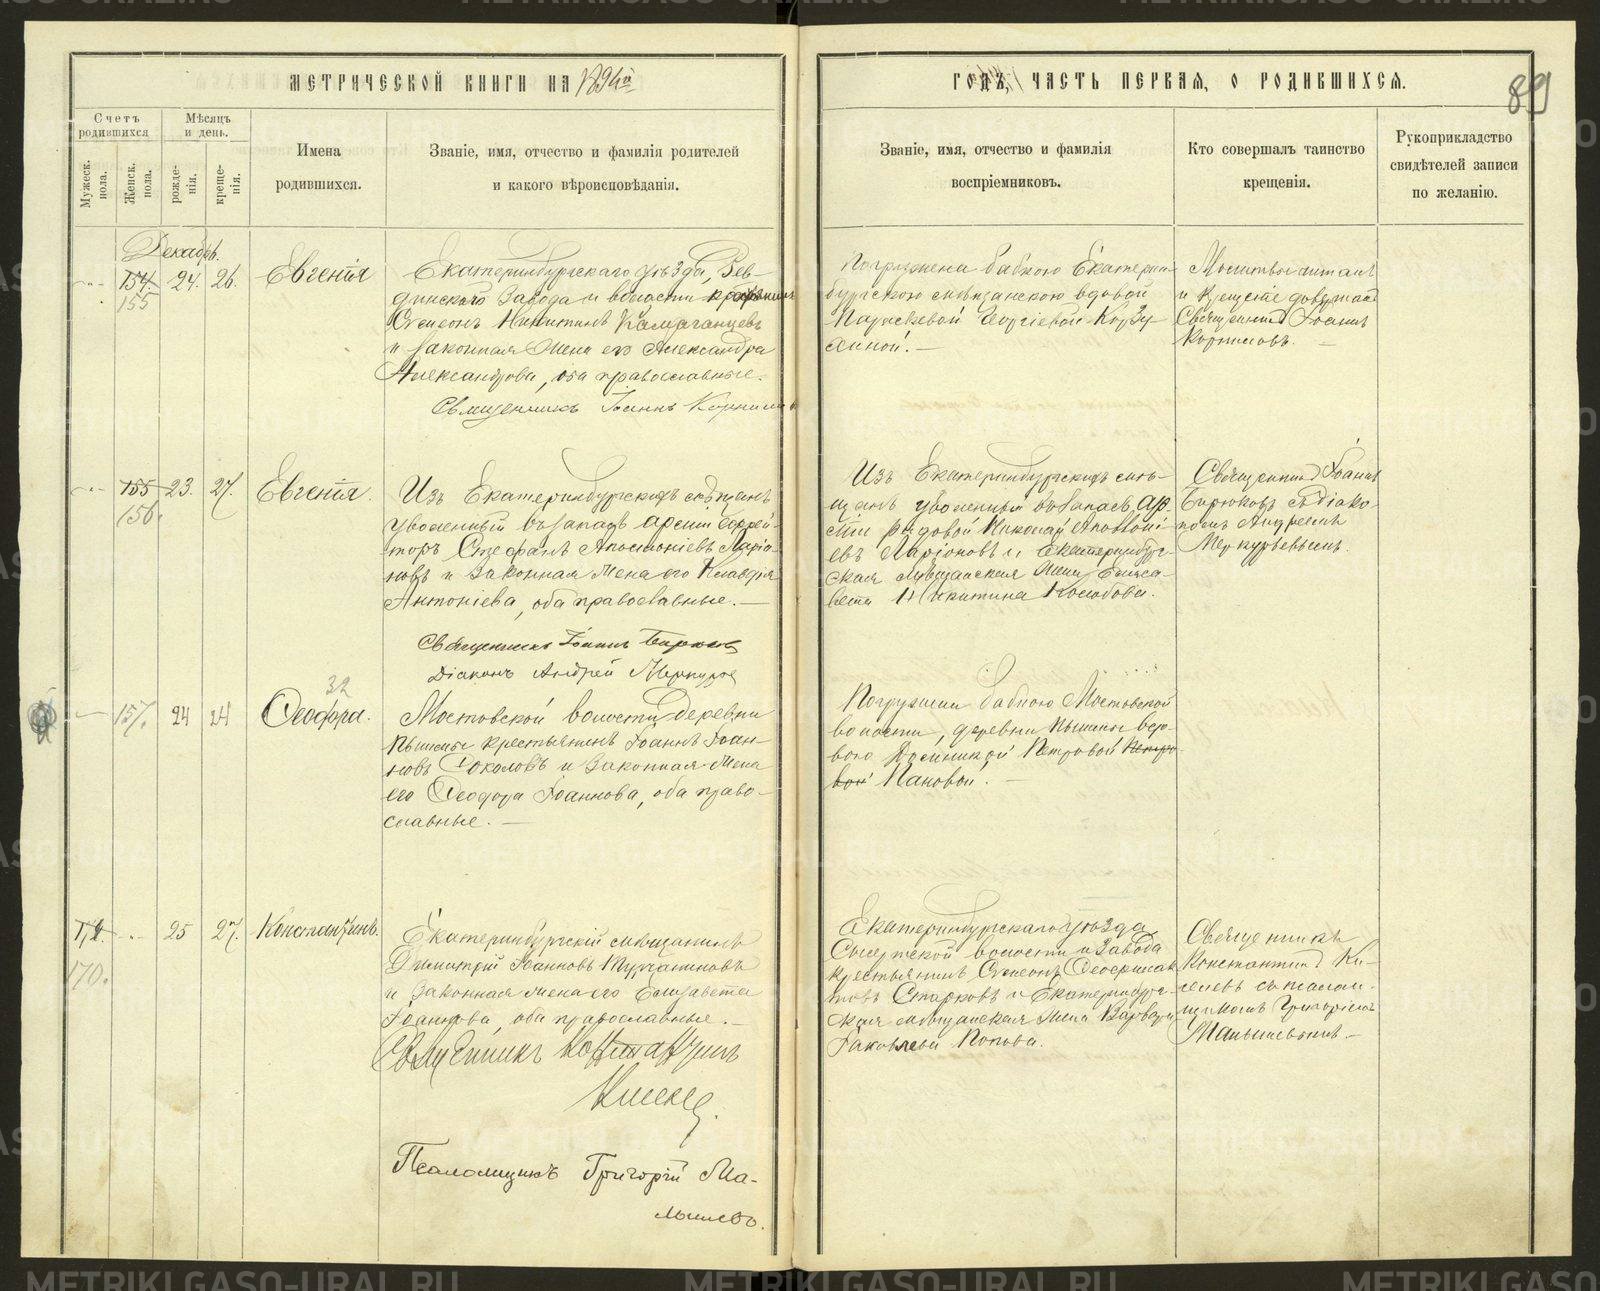 МЕТРИЧЕСКОЙ КНИГИ НА 1894й
ГОДЪ, ЧАСТЬ ПЕРВАЯ, О РОДИВШИХСЯ.
89
Счетъ родившихся
Мѣсяцъ и день.
Мужеск. пола.
Женск. пола.
рожде-нія.
креще-нія.
Имена
родившихся.
Званіе, имя, отчество и фамилія родителей
и какого вѣроисповѣданія.
Званіе, имя, отчество и фамилія
воспріемниковъ.
Кто совершалъ таинство
крещенія.
Рукоприкладство
свидѣтелей записи
по желанію.
Декабрь.
154 24. 26. Евгенія
155
Екатеринбургскаго уѣзда, Рев-
динскаго завода и волости
Симеонъ Никитинъ
и законная жена его Александра
Александрова, оба православные.
Священникъ Іоаннъ Корниловъ
Погружена бабкою Екатерин-
бургскою мѣщанскою вдовой
Параскевой Георгіевой
Молитвовалъ
и крещеніе
Священникъ Іоаннъ
Корниловъ. —
155 23. 27. Евгенія.
156.
Изъ Екатеринбургскихъ мѣщанъ
уволенный въ запасъ арміи ефрей-
торъ Стефанъ Аполлоніевъ Ларіо-
новъ и законная жена его Клавдія
Антоніева, оба православные. —
Священникъ Іоаннъ Бирюковъ
Діаконъ Андрей Меркурьев
Изъ Екатеринбургскихъ мѣ-
щанъ уволенный въ запасъ ар-
міи рядовой Николай Аполлоні-
евъ Ларіоновъ и Екатеринбург-
ская мѣщанская жена Елиса-
вета Никитина
Священникъ Іоаннъ
Бирюковъ съ діако-
номъ Андреемъ
Меркурьевымъ.
32
157. 24 24 Ѳеодора.
Мостовской волости деревни
Пышмы крестьянинъ Іоаннъ Іоан-
новъ Соколовъ и законная жена
его Ѳеодора Іоаннова, оба право-
славные. —
Погружена бабкою Мостовской
волости, деревни Пышмы вдо-
вою Домникой Петровой Петро
вой Пановой. —
25 27. Константинъ.
170.
Екатеринбургскій мѣщанинъ
Димитрій Іоанновъ
и законная жена его Елизавета
Іоаннова, оба православные. —
Священникъ Константинъ
Псаломщикъ Григорій Ма-
лышевъ.
Екатеринбургскаго уѣзда
Сысертской волости и завода
крестьянинъ Симеонъ
Старковъ и Екатеринбург-
ская мѣщанская жена Варвара
Іаковлева Попова.
Священникъ
Константинъ
съ псалом-
щикомъ Григоріемъ
Малышевымъ. —